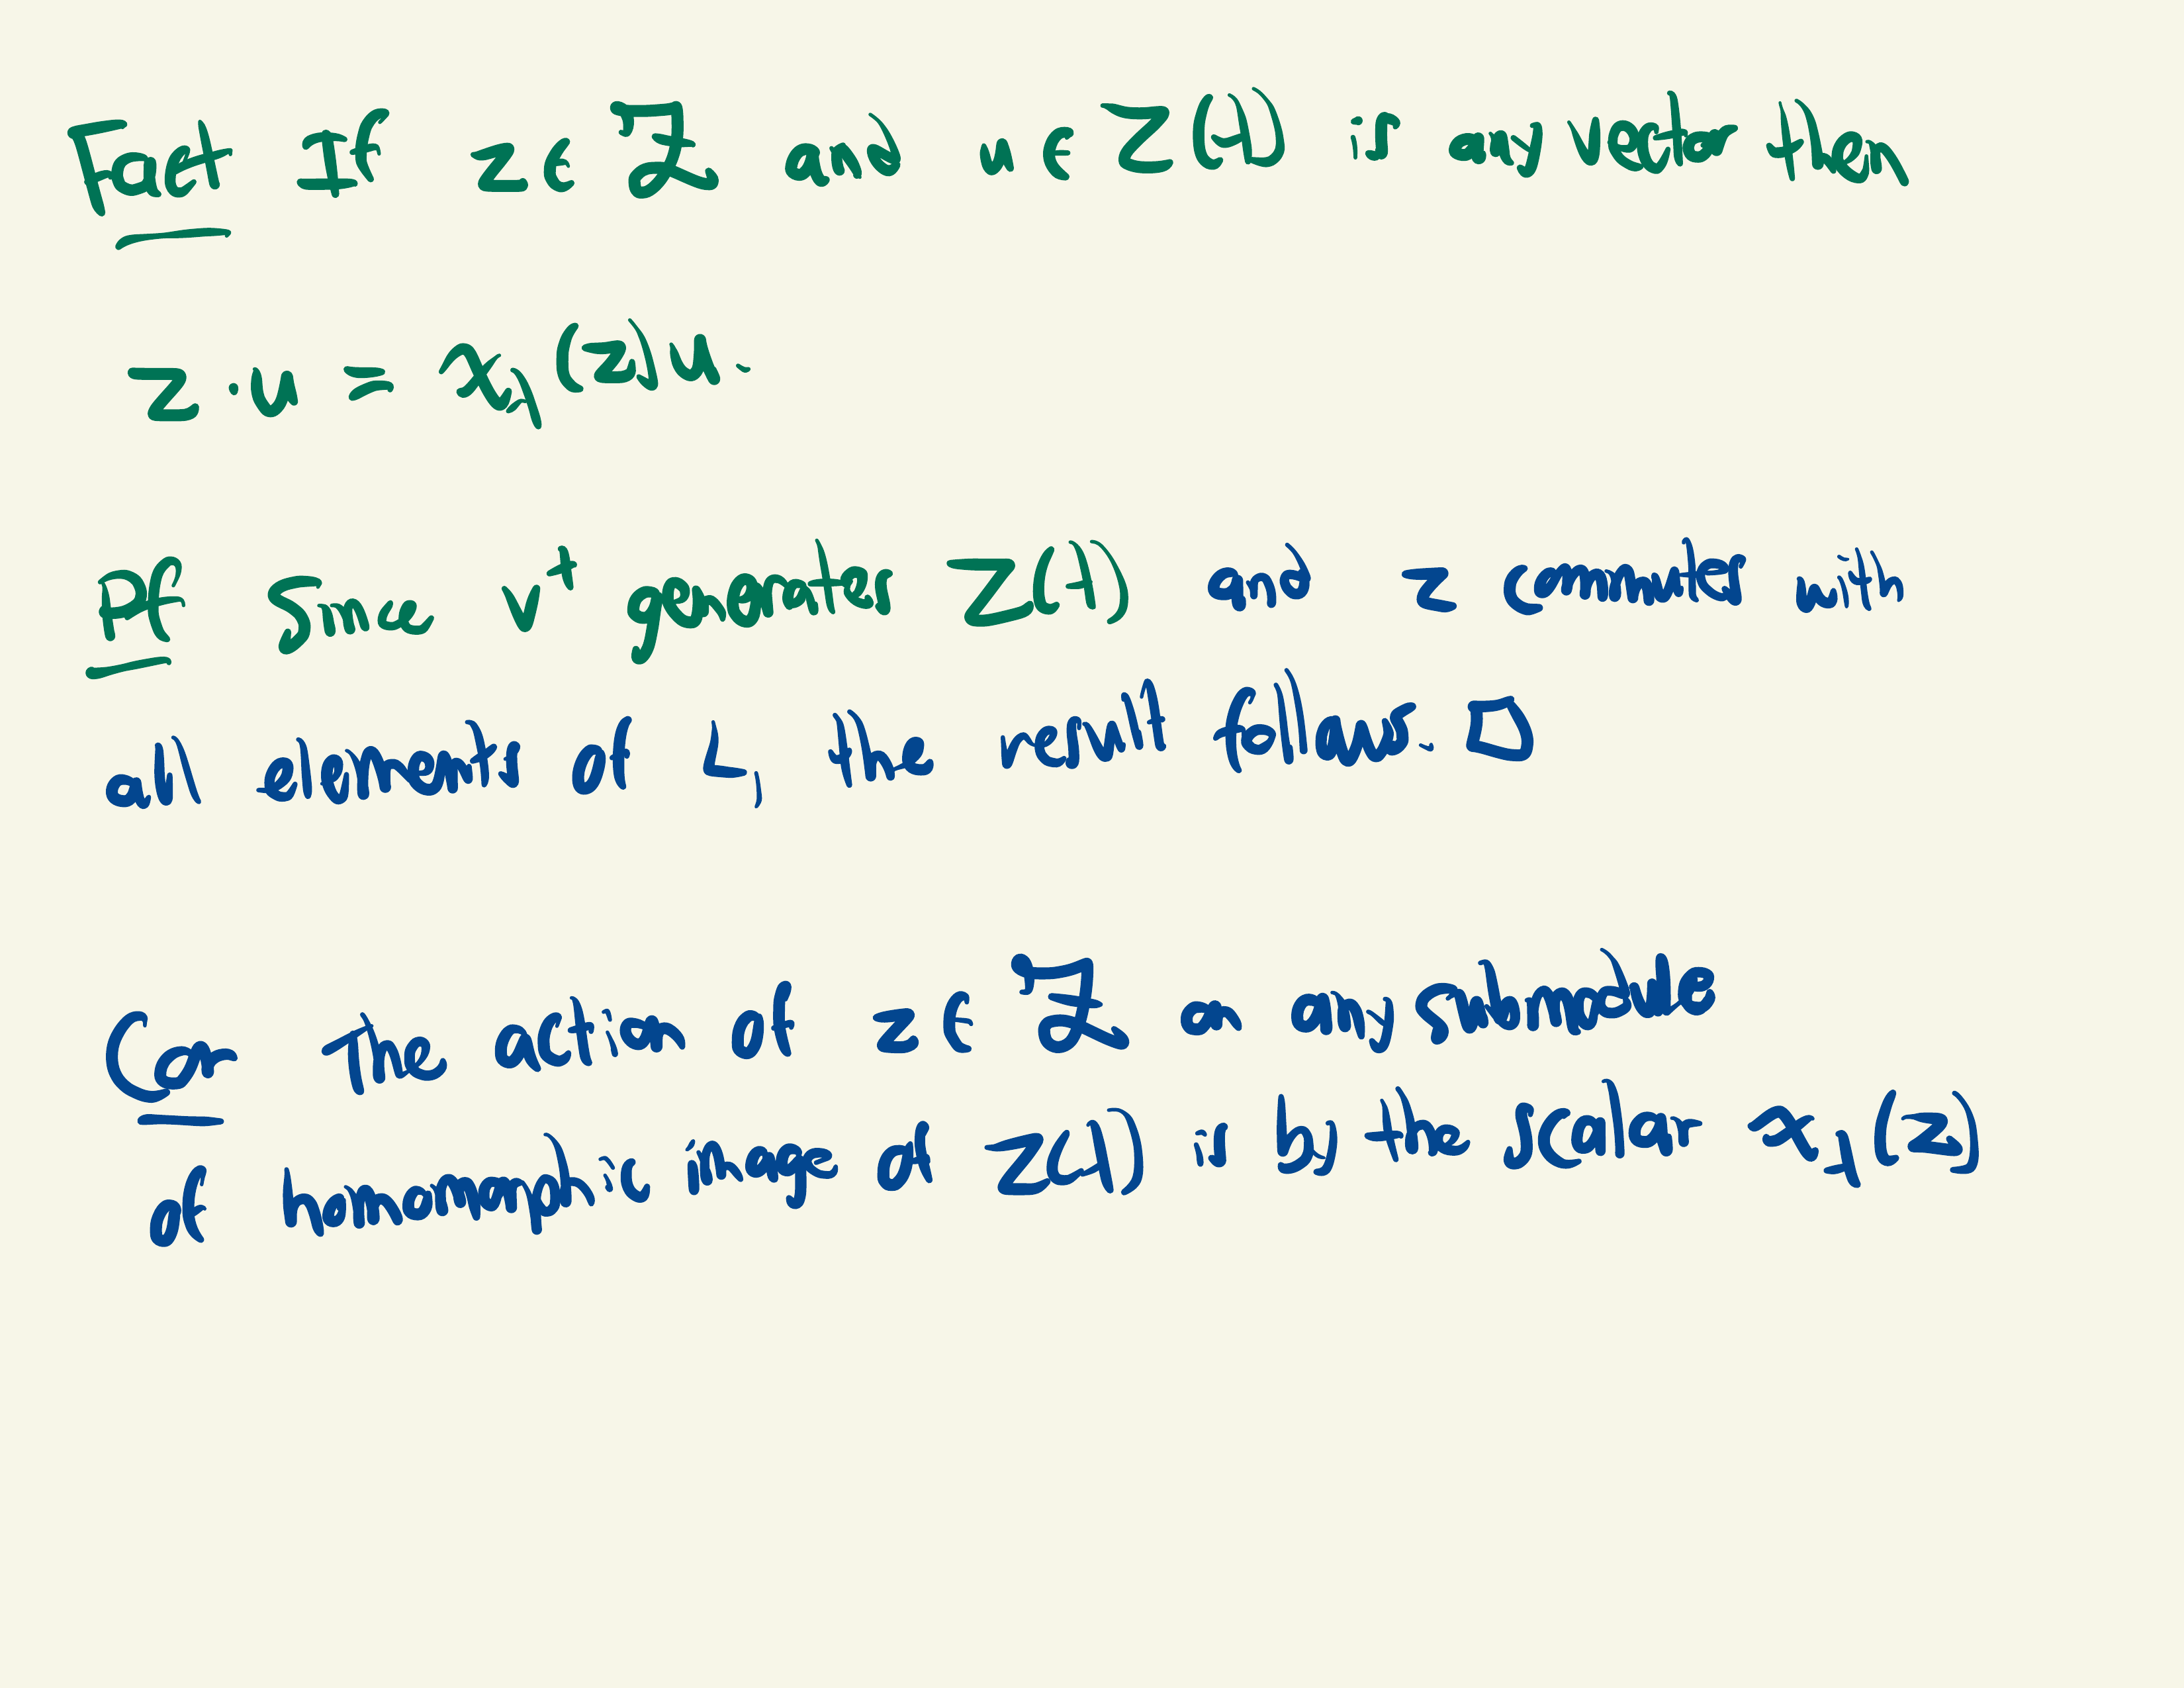 Fact If z ∈ 𝒵 and u ∈ Z(λ) is any vector then
z · u = χ_λ(z) u.
Pf Since v⁺ generates Z(λ) and z commutes with
all elements of L, the result follows. □
Cor The action of z ∈ 𝒵 on any submodule
of homomorphic image of Z(λ) is by the scalar χ_λ(z)